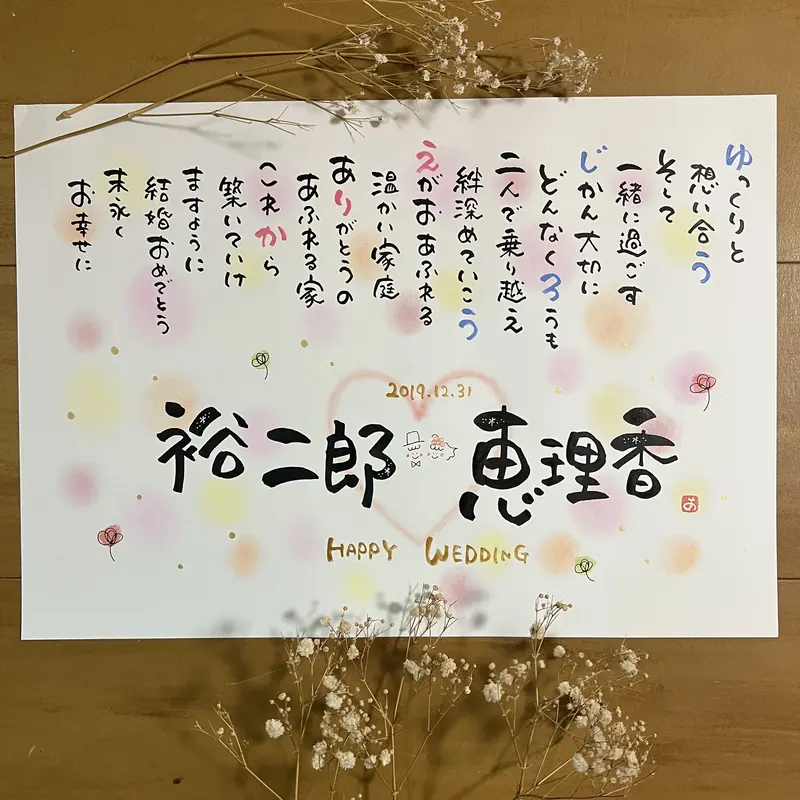 ゆっくりと
想い合う
そして
一緒に過ごす
じかん大切に
どんなくろうも
二人で乗り越え
絆深めていこう
えがおあふれる
温かい家庭
ありがとうの
あふれる家
これから
築いていけ
ますように
結婚おめでとう
末永く
お幸せに
2019.12.31
裕二郎 恵理香
HAPPY WEDDING